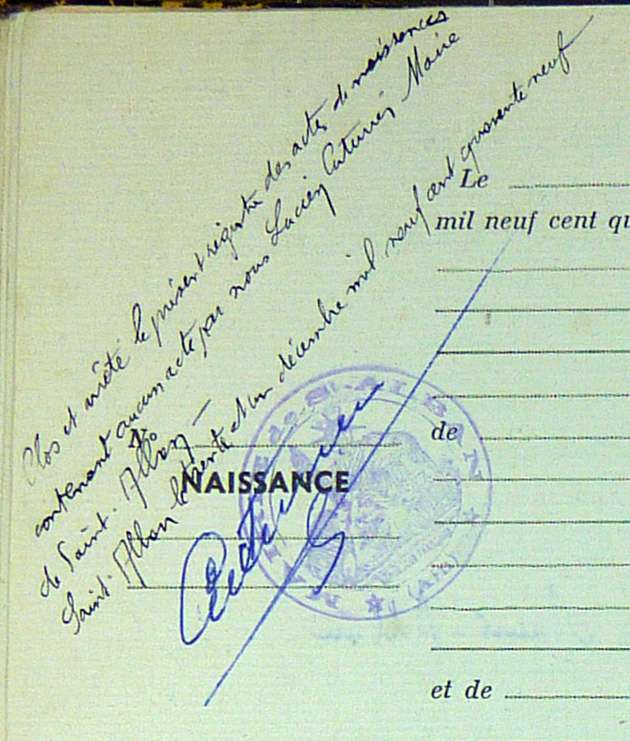 Clos et arrêté le présent registre des actes de naissances
contenant aucun acte par nous Lucien Maire
de Saint. Alban —
Saint. Alban le trente et un décembre mil neuf cent quarante neuf
NAISSANCE
MAIRIE de St ALBAN
(Ain)
Le
mil neuf cent qu
de
et de